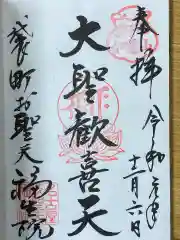 奉拝 令和元年十二月六日
大聖歓喜天
袋町お聖天
福生院